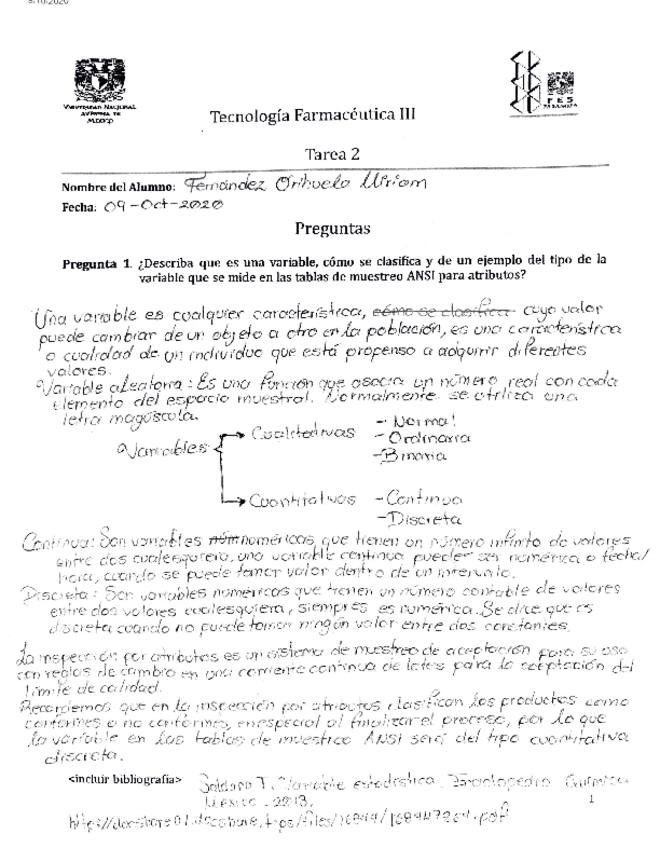 9/10/2020
VNIVERSIDAD NACIONAL
AVTÓNOMA DE
MÉXICO
FES
ZARAGOZA
Tecnología Farmacéutica III
Tarea 2
Nombre del Alumno: Fernández Orihuela Miriam
Fecha: 09-Oct-2020
Preguntas
Pregunta 1. ¿Describa que es una variable, cómo se clasifica y de un ejemplo del tipo de la
variable que se mide en las tablas de muestreo ANSI para atributos?
Una variable es cualquier característica, cómo se clasifica cuyo valor
puede cambiar de un objeto a otro en la población, es una característica
o cualidad de un individuo que está propenso a adquirir diferentes
valores.
Variable aleatoria: Es una función que asocia un número real con cada
elemento del espacio muestral. Normalmente se utiliza una
letra mayúscula.
Variables
Cualitativas
- Normal
- Ordinaria
- Binaria
Cuantitativas
- Continua
- Discreta
Continua: Son variables núm numéricas que tienen un número infinito de valores
entre dos cualesquiera, una variable continua puede ser numérica o fecha/
hora, cuando se puede tomar valor dentro de un intervalo.
Discreta: Son variables numéricas que tienen un número contable de valores
entre dos valores cualesquiera, siempre es numérica. Se dice que es
discreta cuando no puede tomar ningún valor entre dos constantes.
La inspección por atributos es un sistema de muestreo de aceptación para su uso
con reglas de cambio en una corriente continua de lotes para la aceptación del
límite de calidad.
Recordemos que en la inspección por atributos clasifican los productos como
conformes o no conformes, en especial al finalizar el proceso, por lo que
la variable en las tablas de muestreo ANSI será del tipo cuantitativa
discreta.
<incluir bibliografía> Saldaro T. Variable estadística. Química
México. 2013.
1